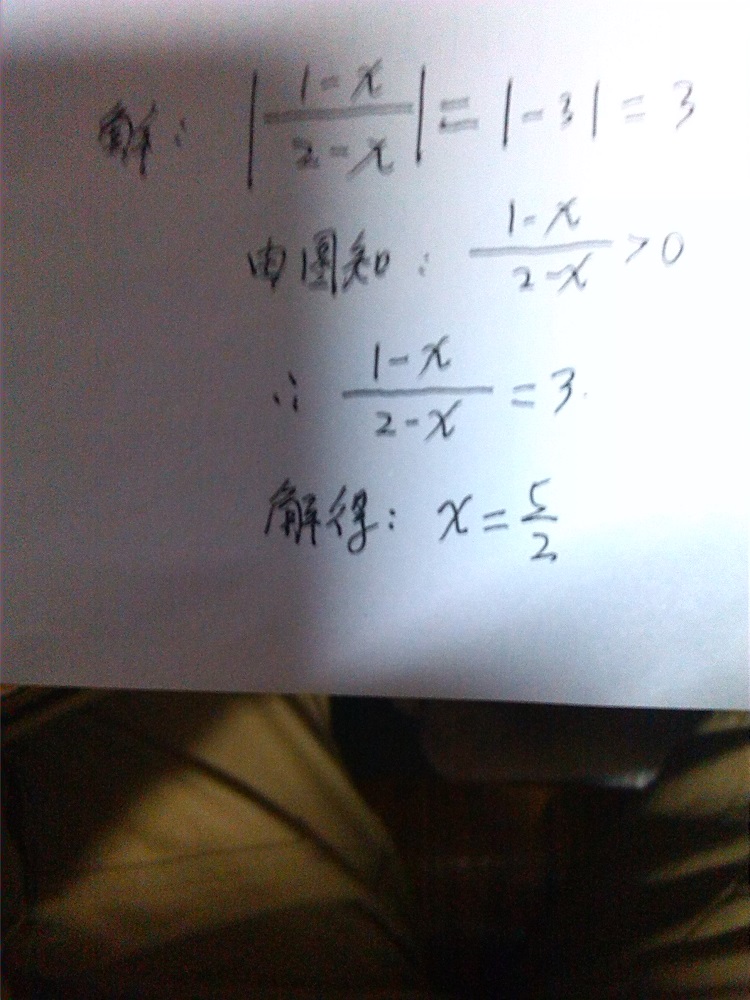 解： |(1-x)/(2-x)| = |-3| = 3
由图知： (1-x)/(2-x) > 0
∴ (1-x)/(2-x) = 3.
解得： x = 5/2